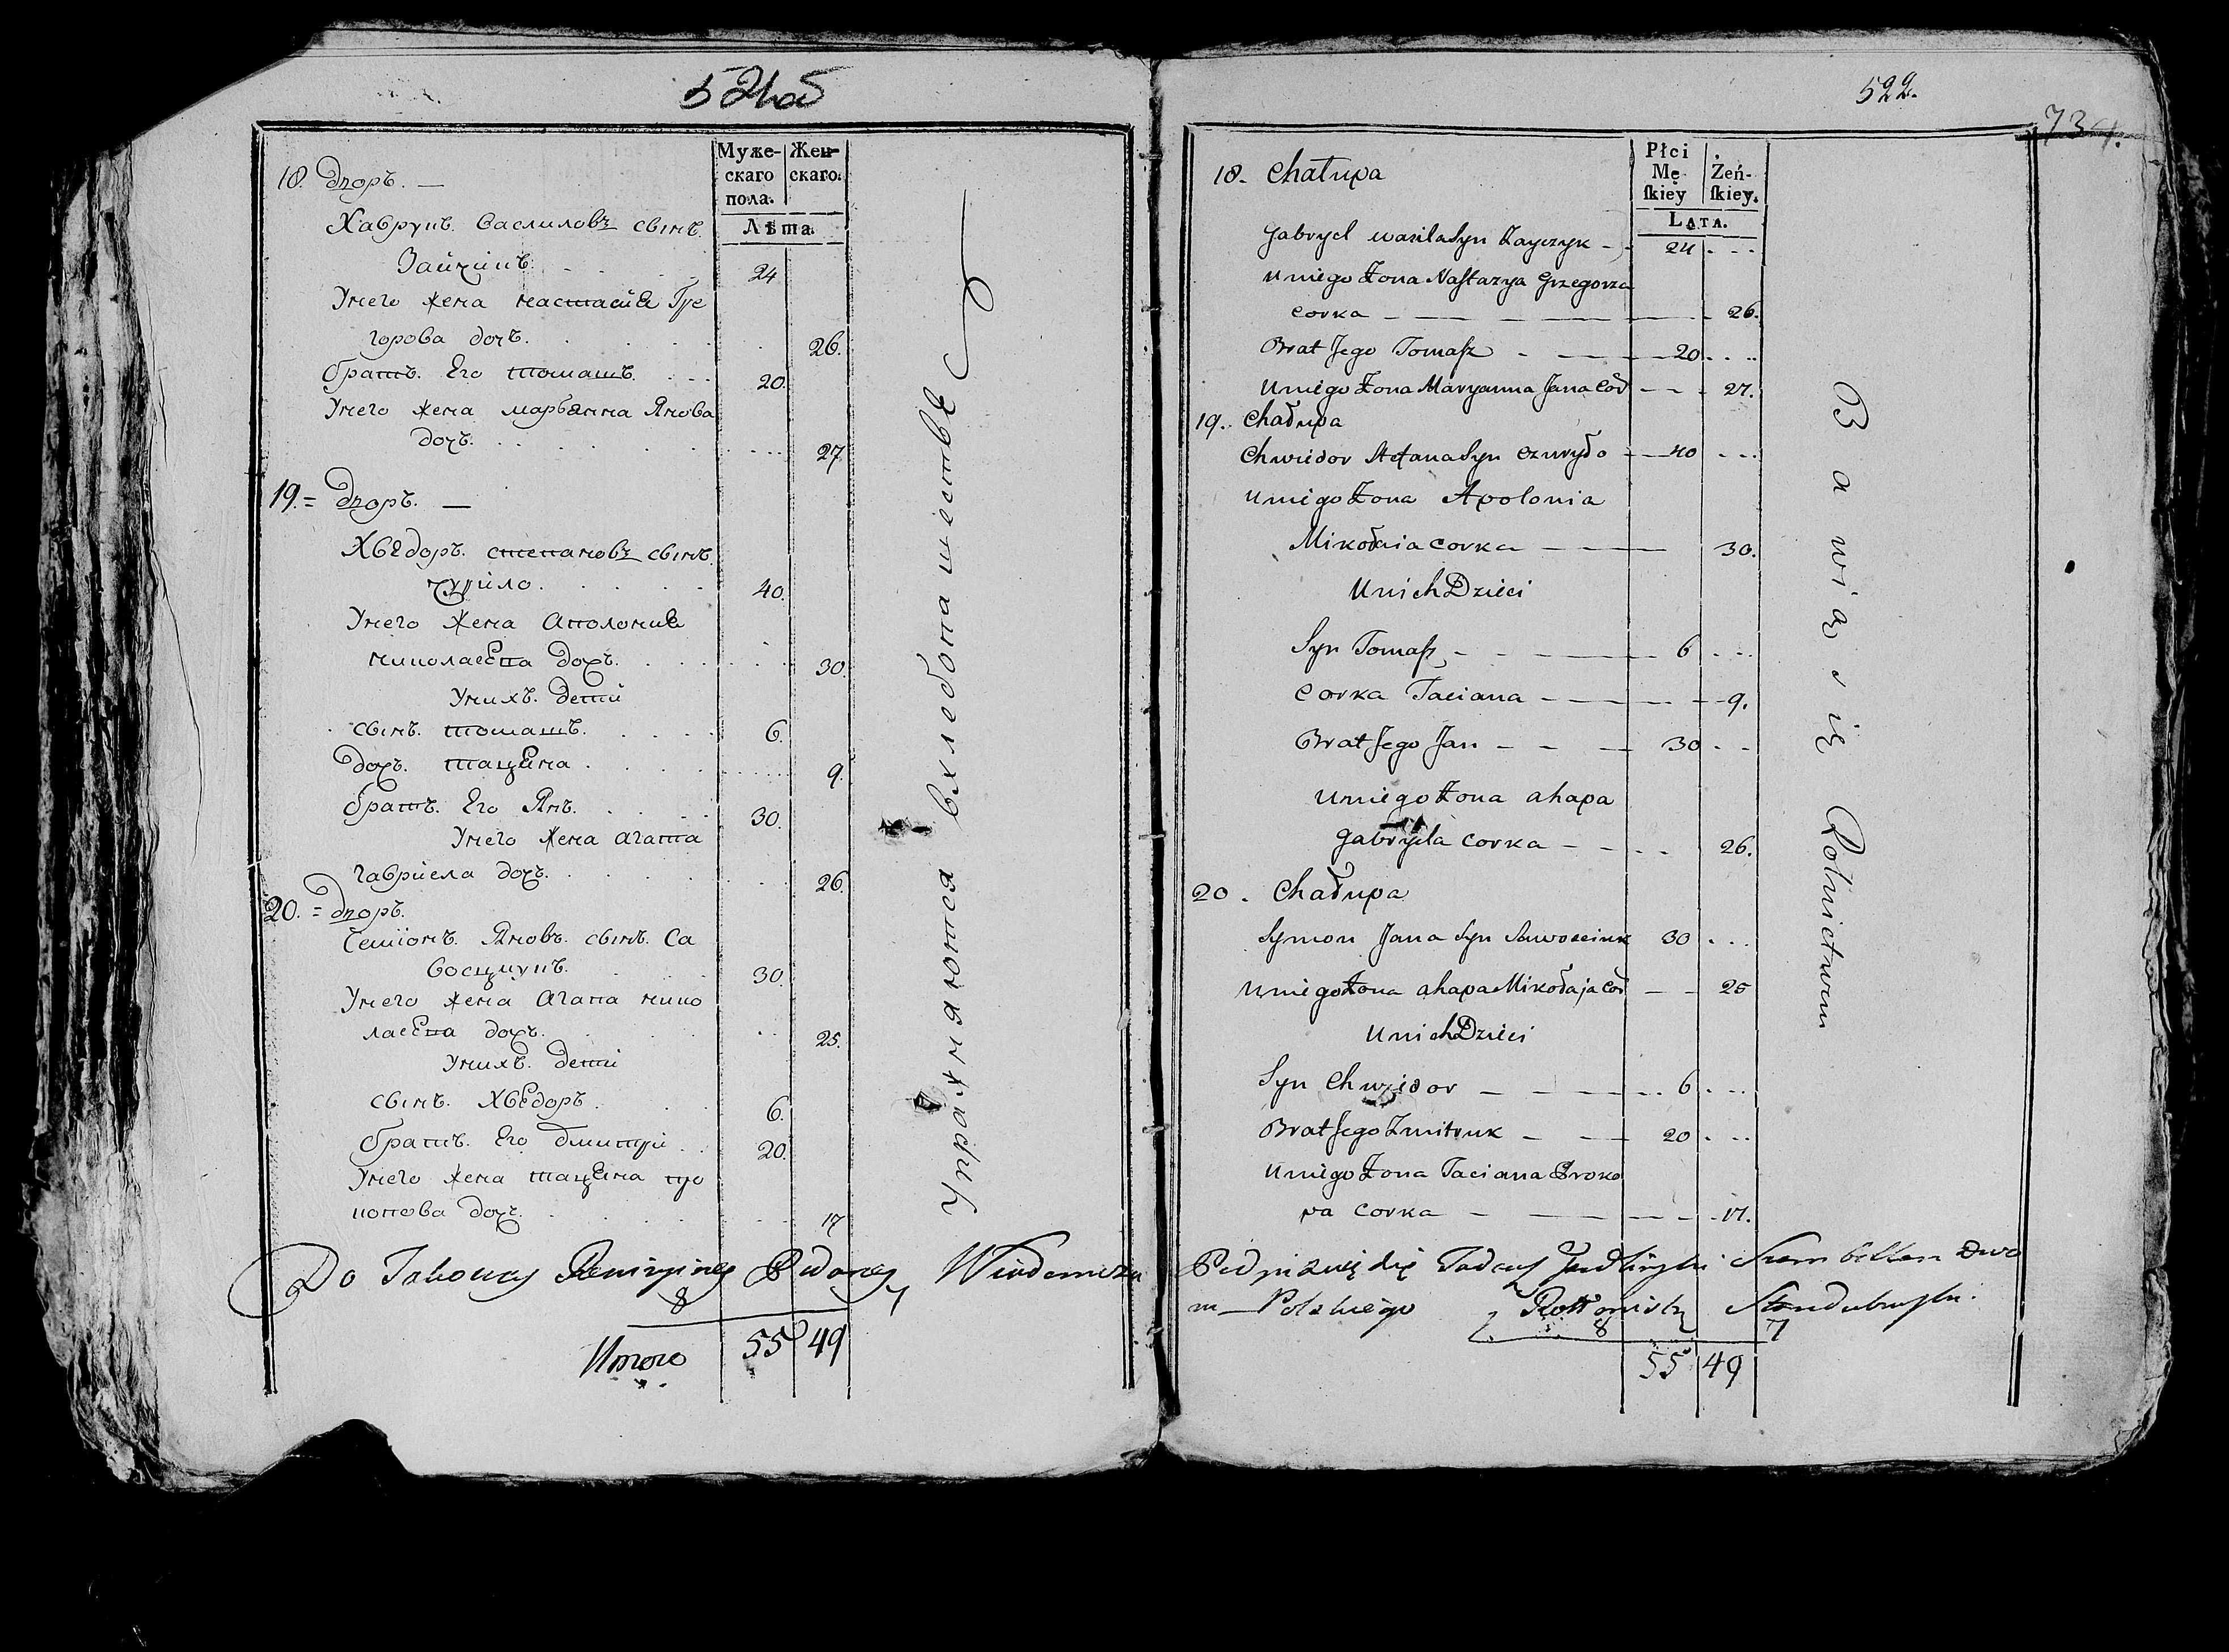 521об
Муже- Жен-
скаго скаго.
пола.
Лѣта.
18. дворъ. —
Хаврукъ. Василовъ сынъ.
Зайчикъ. 24
Унего жена настасия Гре
горова доч. 26.
братъ. Его томашъ. 20.
Унего жена марьянна Янова
доч. 27
19. = дворъ. —
Хведоръ. степановъ сынъ.
чурило. 40.
Унего жена Аполония
николаева доч. 30.
Унихъ. дети
сынъ. томашъ. 6.
доч. тацяна. 9.
братъ. Его Янъ. 30.
Унего жена агата
гавриела доч. 26.
20. = дворъ.
Семіонъ. Яновъ. сынъ. Са
восцюкъ. 30.
Унего жена агапа нико
лаева доч. 25.
Унихъ. дети
сынъ. хведоръ. 6.
братъ. Его дмитри 20.
Унего жена тацяна про
копова доч. 17
Упражняются вхлебопашестве
8 7
Итого 55 49
522.
734.
Płci
Mę- Żeń-
ſkiey ſkiey.
LATA.
18. Chałupa
Gabryel wasila Syn Zayczyk 24
Uniego Żona Naſtazya Grzegorza
corka 26.
Brat Jego Tomaſz 20
Uniego Żona Maryanna Jana Cor 27.
19. Chałupa
Chwiedor Stefana Syn Czuryło 40
Uniego Żona Apolonia
Mikołaia corka 30.
Unich Dzieci
Syn Tomaſz 6
Corka Taciana 9.
Brat Jego Jan 30
Uniego Żona ahapa
Gabryela corka 26.
20. Chałupa
Symon Jana Syn Sawosciuk 30
Uniego Żona ahapa Mikołaja Cor 25
Unich Dzieci
Syn Chwiedor 6
Brat Jego Zmitruk 20
Uniego Żona Taciana Proko
pa corka 17.
Bawią się Rolnictwem
Do Takowey Rewizyiney Podaney Wiadomości Podpisuię się Tadeusz
m Polskiego
8 7
55 49